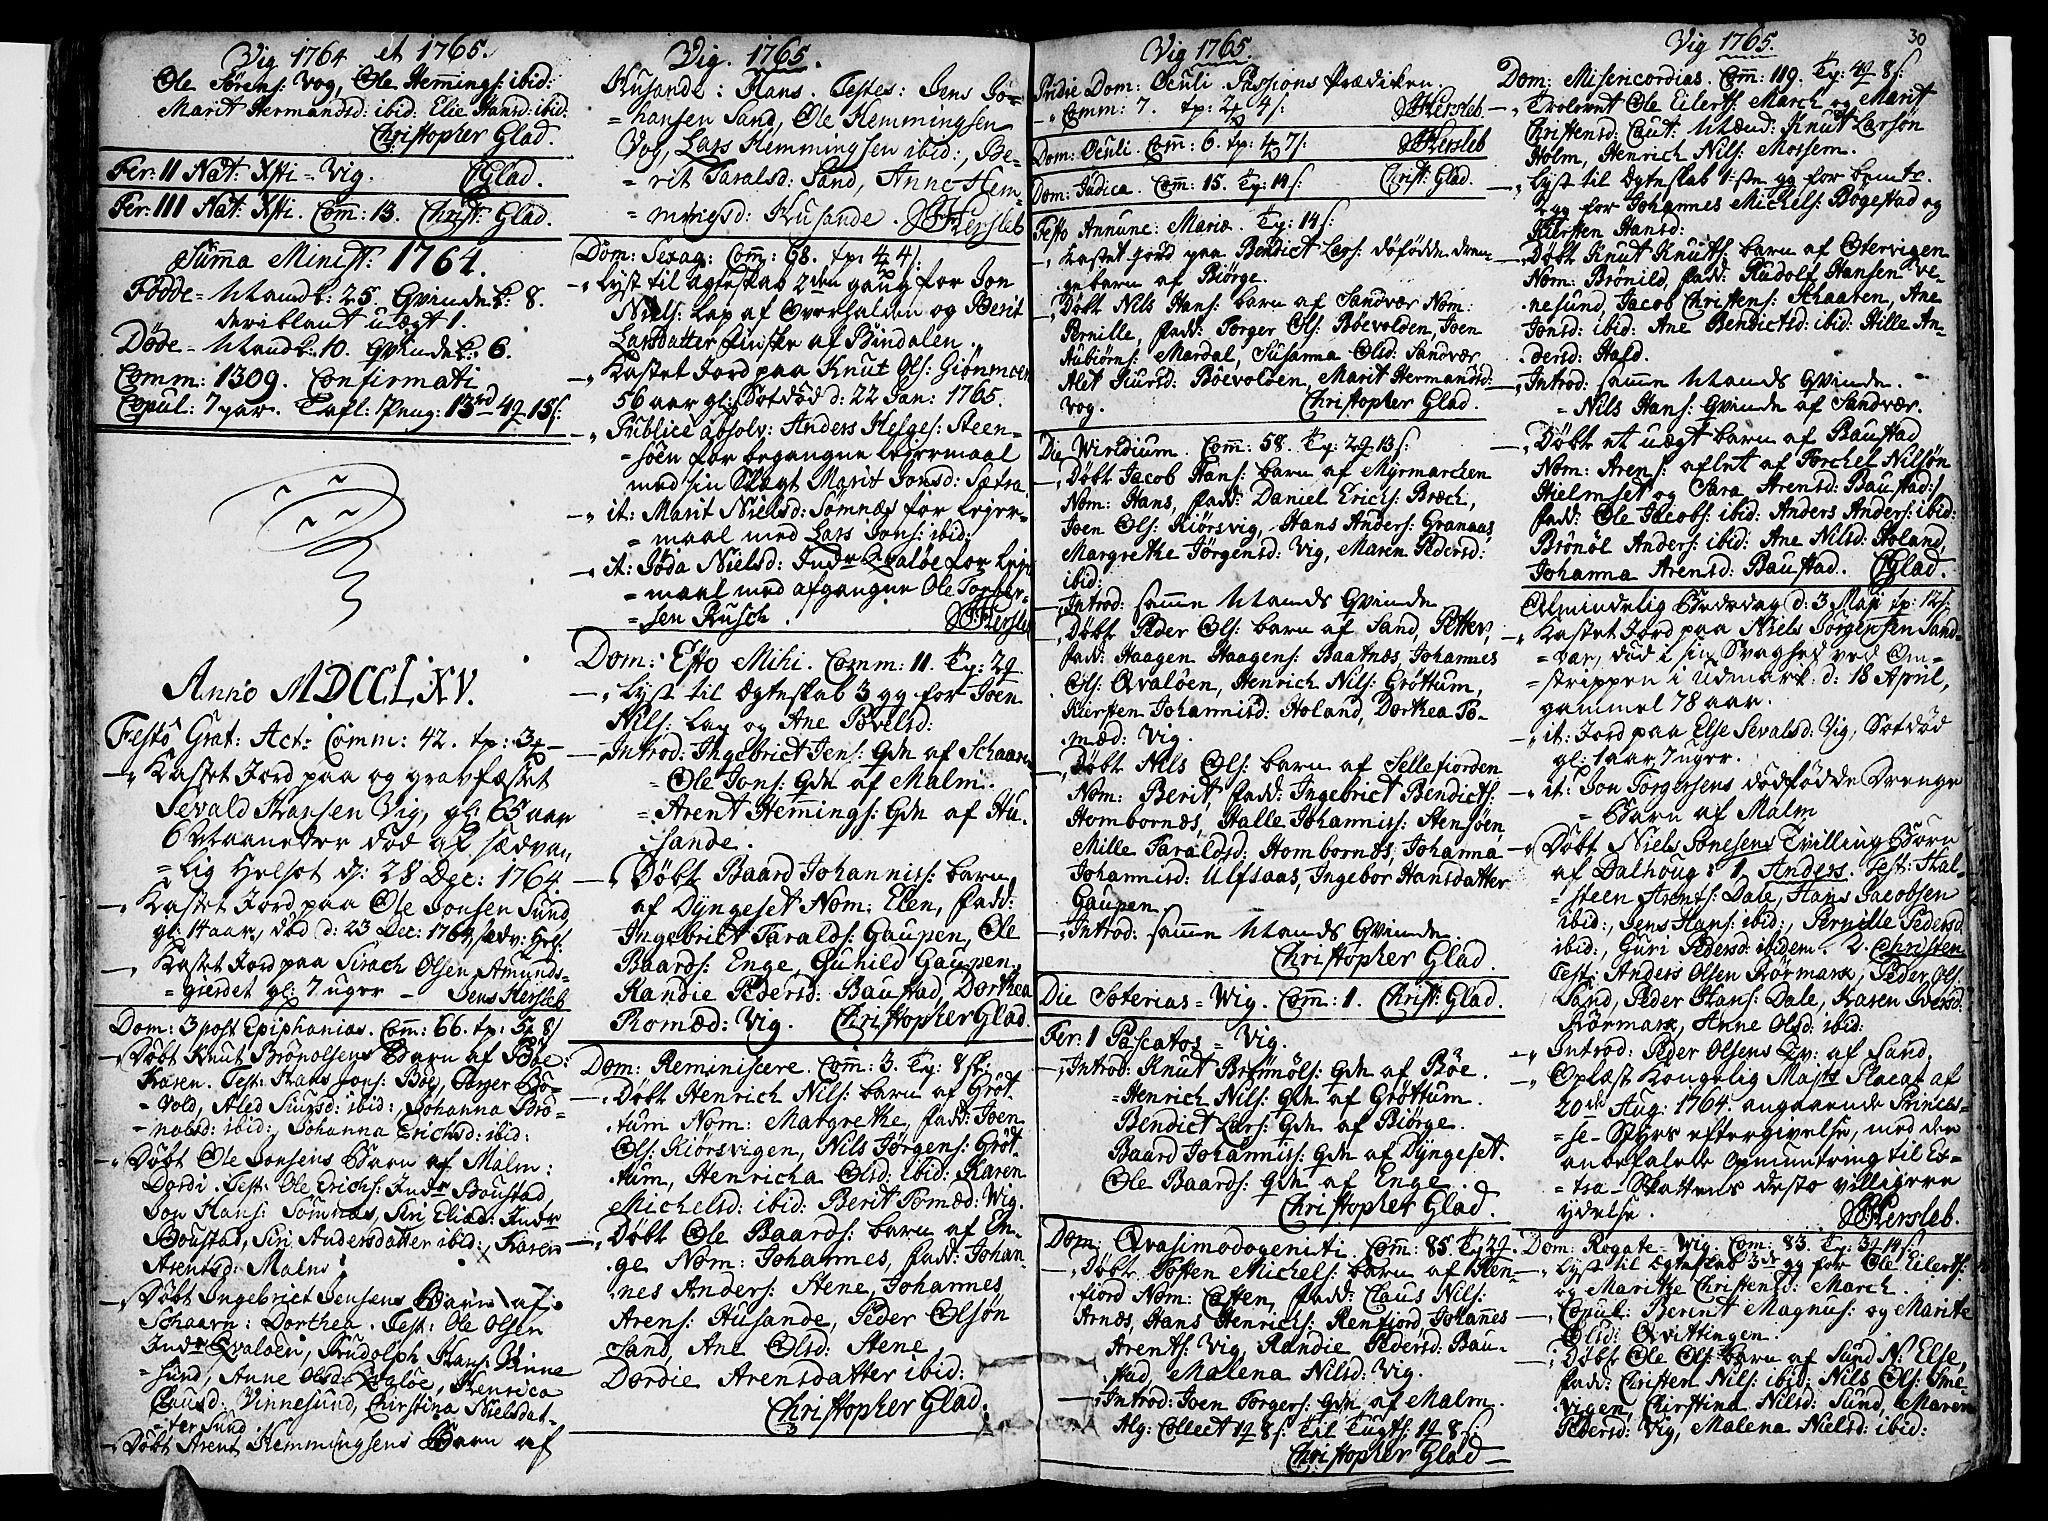 Vig 1764 et 1765.
Ole Sörens: Vog, Ole Hemmings: ibid:
Marit Hermandsd: ibid: Elie Hansd: ibid:
Christopher Glad.
Fer: II Nat: Xsti = Vig. CGlad.
Fer: III Nat: Xsti. Com: 13. Christ: Glad.
Summa Minist: 1764.
Födde = Mandk: 25. Qvindek: 8.
deriblant uægt 1.
Döde = Mandk: 10. Qvindek: 6.
Comm: 1309. Confirmati
Copul: 7 par. Tafl: Peng: 13rd 4q 15s:
Anno MDCCLXV.
Festo Grat: Act: Comm: 42. tp: 3q
Kastet Jord paa og gravfæstet
Sevald Hansen Vig, gl: 65 aar
6 Maaneder död af sædvan
= lig Helsot d: 28 Dec: 1764
Kastet Jord paa Ole Jonsen Sund,
gl: 14 aar, död d: 23 Dec: 1764, sædv: Hels:
Kastet Jord paa Sirach Olsen Amunds-
= gierdet gl: 7 uger — Jens Hersleb
Dom: 3 post Epiphanias. Com: 66. tp: 3q 8s
Döbt Knut Brönolsens Barn af Böe:
Karen. Test: Hans Jons: Böe, Torger Bö-
= vold, Aled Siursd: ibid:, Johanna Brö-
= nolsd: ibid:, Johanna Erichsd: ibid:
Döbt Ole Jonsens Barn af Malm:
Dordi. Test: Ole Erichs: Indr Boustad,
Jon Hans: Sömnæs, Siri Eliæd: Indr
Boustad, Siri Andersdatter ibid: Karen
Arentsd: Malm:
Döbt Ingebrict Jensens Barn af
Schaarn: Dorthea. Test: Ole Olsen
Indr Qvalöen, Rudolph Hans: Vinne
= sund, Anne Olsd: Qvalöe, Henrica
Clausd: Vinnesund, Christina Nielsdat-
= ter Sund.
Döbt Arent Hemmingsens Barn af
Vig. 1765.
Husande: Hans. Testes: Jens Jo-
= hansen Sand, Ole Hemmingsen
Vog, Lars Hemmingsen ibid:, Be-
= rit Taralsd: Sand, Anne Hem-
= mingsd: Husande JHersleb
Dom: Sexag: Com: 68. tp: 4q 4s:
Lyst til Ægteskab 2den gang for Jon
Niels: Lap af Overhalden og Berit
Larsdatter Finske af Bindalen.
Kastet Jord paa Knut Ols: Giönmoen
56 aar gl: Sotdöd d: 22 Jan: 1765.
Publice absolv: Anders Helges: Steen-
= söen for begangne Lejermaal
med sin Slægt Marit Jonsd: Sætra.
it: Marit Nielsd: Sömnæs for Lejer-
= maal med Lars Jons: ibid:
it: Joda Nielsd: Indr Qvalöe for Lejer
= maal med afgangne Ole Torger-
= sen Rusch. JHersleb
Dom: Esto Mihi. Comm: 11. Tp: 2q
Lyst til Ægteskab 3 gg for Joen
Nils: Lap og Ane Povelsd:
Introd: Ingebrict Jens: Qvdn af Schaaren
= Ole Jons: Qvdn af Malm.
= Arent Hemmings: Qvdn af Hu-
sande.
Döbt Baard Johanniss: barn
af Dyngeset Nom: Elen, fadd:
Ingebrict Taralds: Gaupen, Ole
Baards: Enge, Gunild Gaupen,
Randie Pedersd: Baustad, Dorthea
Romæd: Vig. Christopher Glad.
Dom: Reminiscere. Com: 3. Tp: 8sk:
Döbt Henrich Nils: barn af Gröt
tum Nom: Margrethe, fadd: Joen
Ols: Kiörsvigen, Nils Jörgens: Gröt-
tum, Henricha Olsd: ibid: Karen
Michelsd: ibid: Berit Tomæd: Vig.
Döbt Ole Baards: barn af En-
ge Nom: Johannes, fadd: Johan-
nes Anders: Stene, Johannes
Arens: Husande, Peder Olsön
Sand, Ane Olsd: Stene,
Dordie Arensdatter ibid:
Christopher Glad.
Vig 1765.
Pridie Dom: Oculi. Passions Prædiken.
Comm: 7. tp: 2q 4s: JHersleb.
Dom: Oculi. Comm: 6. tp: 4q 7s: JHersleb
Dom: Judica. Com: 15. Tp: 14s: Christ: Glad.
Festo Annunc: Mariæ. Tp: 14s:
Kastet jord paa Bendict Lars: döfödde dren-
ge barn af Biörge.
Döbt Nils Hans: barn af Sandvær Nom:
Pernille, fadd: Torger Ols: Böevolden, Joen
Aubiörns: Mardal, Susanna Olsd: Sandvær
Alet Siursd: Böevolden, Marit Hermandsd:
Vog. Christopher Glad.
Die Viridium. Com: 58. Tp: 2q 13s:
Döbt Jacob Hans: barn af Myrmarchen
Nom: Hans, fadd: Daniel Erichs: Bræch,
Joen Ols: Kiörsvig, Hans Anders: Granaas,
Margrethe Jörgensd: Vig, Maren Pedersd:
ibid:
Introd: samme Mands Qvinde
Döbt Peder Ols: barn af Sand, Petter,
fadd: Haagen Haagens: Baatnæs, Johannes
Ols: Qvalöen, Henrich Nils: Gröttum,
Kiersten Johannisd: Holand, Dorthea To-
mæd: Vig.
Döbt Nils Ols: barn af Sellefiorden
Nom: Berit, fadd: Ingebrict Bendicts:
Hombornæs, Halle Johanniss: Stensöen
Mille Taraldsd: Hombornæs, Johanna
Johannisd: Ulfsaas, Ingebor Hansdatter
Gaupen.
Introd: samme Mands Qvinde.
Christopher Glad.
Die Soterias = Vig. Com: 1. Christ: Glad.
Fer: 1 Pascatos = Vig.
Introd: Knut Brönnöls: Qvdn af Böe.
= Henrich Nils: Qvdn af Gröttum.
Bendict Lars: Qvdn af Biörge.
Baard Johanniss: Qvdn af Dyngeset.
Ole Baards: Qvdn af Enge.
Christopher Glad.
Dom: Qvasimodogeniti. Com: 85. Tp 2q
Döbt Tosten Michels: barn af Ren-
fiord Nom: fadd: Claus Nils:
Arnæs, Hans Henrichs: Renfiord, Johannes
Arents: Vig, Randie Pedersd: Bau-
stad, Malena Nilsd: Vig.
Introd: Joen Torgers: Qvdn af Malm.
Alg: Collect 1q 8s: Til Tugts: 1q 8s:
Christopher Glad
Vig 1765.
30
Dom: Misericordias. Com: 119. Tp: 4q 8s:
Trolovet Ole Eilerts: March og Marit
Christensd: Caut: Mænd: Knut Larsön
Holm, Henrich Nils: Mossem.
Lyst til Ægteskab 1ste gg for bemte.
Lyg for Johannes Michels: Bogestad og
Kiersten Hansd:
Döbt Knut Knuts: barn af Otervigen
Nom: Brönild, fadd: Rudolf Hansen Ve-
nesund, Jacob Christens: Schaaren, Ane
Jonsd: ibid: Ane Bendictsd: ibid: Hille An-
dersd: Hald.
Introd: samme Mands Qvinde.
= Nils Hans: Qvinde af Sandvær.
Döbt et uægt barn af Baustad
Nom: Aren /: aflet af Torchel Nilsön
Hielmset og Sara Arensd: Baustad :/
fadd: Ole Jacobs: ibid: Anders Anders: ibid:
Brönöl Anders: ibid: Ane Nilsd: Holand,
Johanna Arensd: Baustad. CGlad.
Almindelig Bededag d: 3 Maji tp: 12s:
Kastet Jord paa Niels Jörgensen Sand-
= vær, död i sin Svaghed ved Om-
= strippen i Udmark d: 18 April,
gammel 78 aar.
it: Jord paa Else Sevalsd: Vig, Sotdöd
gl: 1 aar, 7 uger.
it: Jon Torgersens dödfödde Drenge
= Barn af Malm
Döbt Niels Jonesens Tvilling Börn
af Dalhoug: 1 Anders. Test: Hal-
= steen Arents: Dale, Hans Jacobsen
ibid:, Jens Hans: ibid:, Pernille Pedersd
ibid:, Guri Pedersd: ibidem. 2. Christen
Test: Anders Olsen Körmark, Peder Ols
Sand, Peder Hans: Dale, Karen Iversd:
Körmark, Anne Olsd: ibid:
Introd: Peder Olsens Qv: af Sand.
Oplæst Kongelig Majts Placat af
20de Aug: 1764. angaaende Prinses-
= se-Styrs eftergivelse, med den
anbefalede Opmuntring til Ex-
= tra-Skattens desto villigere
ydelse. JHersleb.
Dom: Rogate = Vig. Com: 83. Tp: 3q 14s:
Lyst til Ægteskab 3de gg for Ole Eilerts:
og Marithe Christensd: March.
Copul: Berint Magnus: og Marite
Olsd: Qvittingen.
Döbt Ole Ols: barn af Sund N: Else,
fadd: Christen Nils: ibid: Nils Ols: Sme-
vigen, Christina Nilsd: Sund, Maren
Pedersd: Vig, Malena Nielsd: ibid: